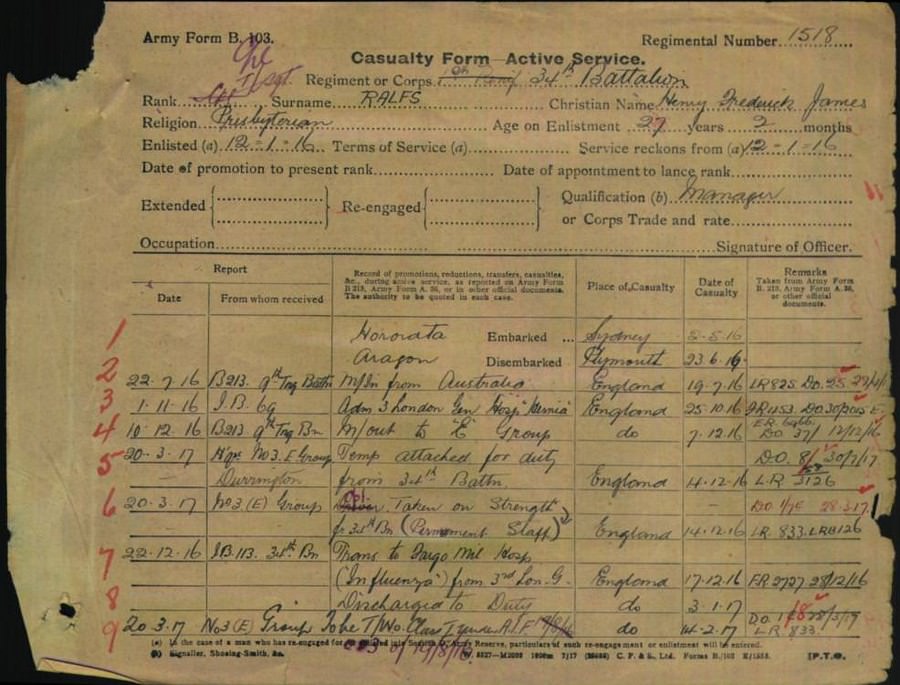 Army Form B. 103.
Regimental Number 1518
Casualty Form - Active Service.
Regiment or Corps 34th Battalion
Rank T/Sgt Surname RALFS Christian Name Henry Frederick James
Religion Presbyterian Age on Enlistment 27 years 2 months
Enlisted (a) 12-1-16 Terms of Service (a) Service reckons from (a) 12-1-16
Date of promotion to present rank Date of appointment to lance rank
Extended Re-engaged Qualification (b) Manager
or Corps Trade and rate
Occupation Signature of Officer.
Report
Date From whom received
Record of promotions, reductions, transfers, casualties, &c., during active service, as reported on Army Form B. 213, Army Form A. 36, or in other official documents. The authority to be quoted in each case.
Place of Casualty
Date of Casualty
Remarks
Taken from Army Form B. 213, Army Form A. 36, or other official documents.
1 Hororata Embarked ... Sydney 2-5-16
Aragon Disembarked Plymouth 23.6.16
2 22.7.16 B213. 9th Trng Battn M/In from Australia England 19.7.16 LR825 DO.25
3 1.11.16 I.B. 69 Adm 3 London Gen Hosp Hernia England 25.10.16
4 10.12.16 B213 9th Trng Bn M/out to "E" Group do 7.12.16 DO 37/ 12/12/16
5 20-3-17 Hqrs No3.E Group Temp attached for duty D.O. 8/ 30/7/17
Durrington from 34th Battn. England 14-12-16 L.R 3126
6 20-3-17 No3.(E) Group Cpl. Taken on Strength 28.3.17
fr. 34th Bn (Permanent Staff) England 14-12-16 LR. 833.
7 22.12.16 I.B.113. 34th Bn Trans to Fargo Mil Hosp
(Influenza) from 3rd Lon. G. England 17.12.16 F.R. 2727 28/12/16
8 Discharged to Duty do 3-1-17
9 20-3-17 No3 (E) Group To be T/Wo. Class I under A.I.F. do 14-2-17 L.R 833.
(a) In the case of a man who has re-engaged for or enlisted into Section D. Army Reserve, particulars of such re-engagement or enlistment will be entered.
(b) Signaller, Shoeing-Smith, &c. C. P. & S., Ltd. Forms B./103 [P.T.O.